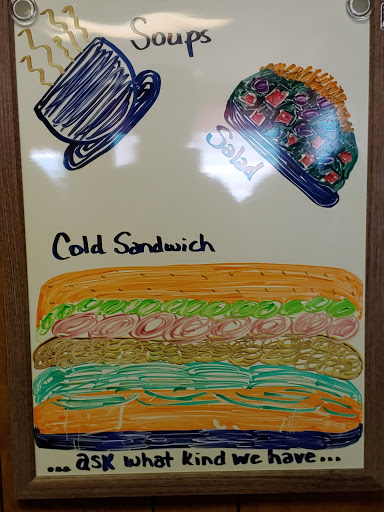 Soups
Salad
Cold Sandwich
...ask what kind we have...